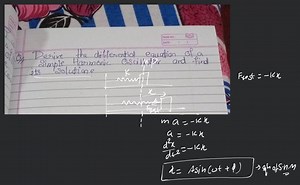 Derive the differential equation of a
Simple Harmonic Oscillator and find
its Solution.
K
x
Frest = -Kx
m a = -Kx
a = -Kx
d²x/dt² = -Kx
x = A sin(ωt + φ)